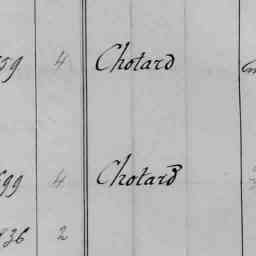 59 4 Chotard
699 4 Chotard
836 2